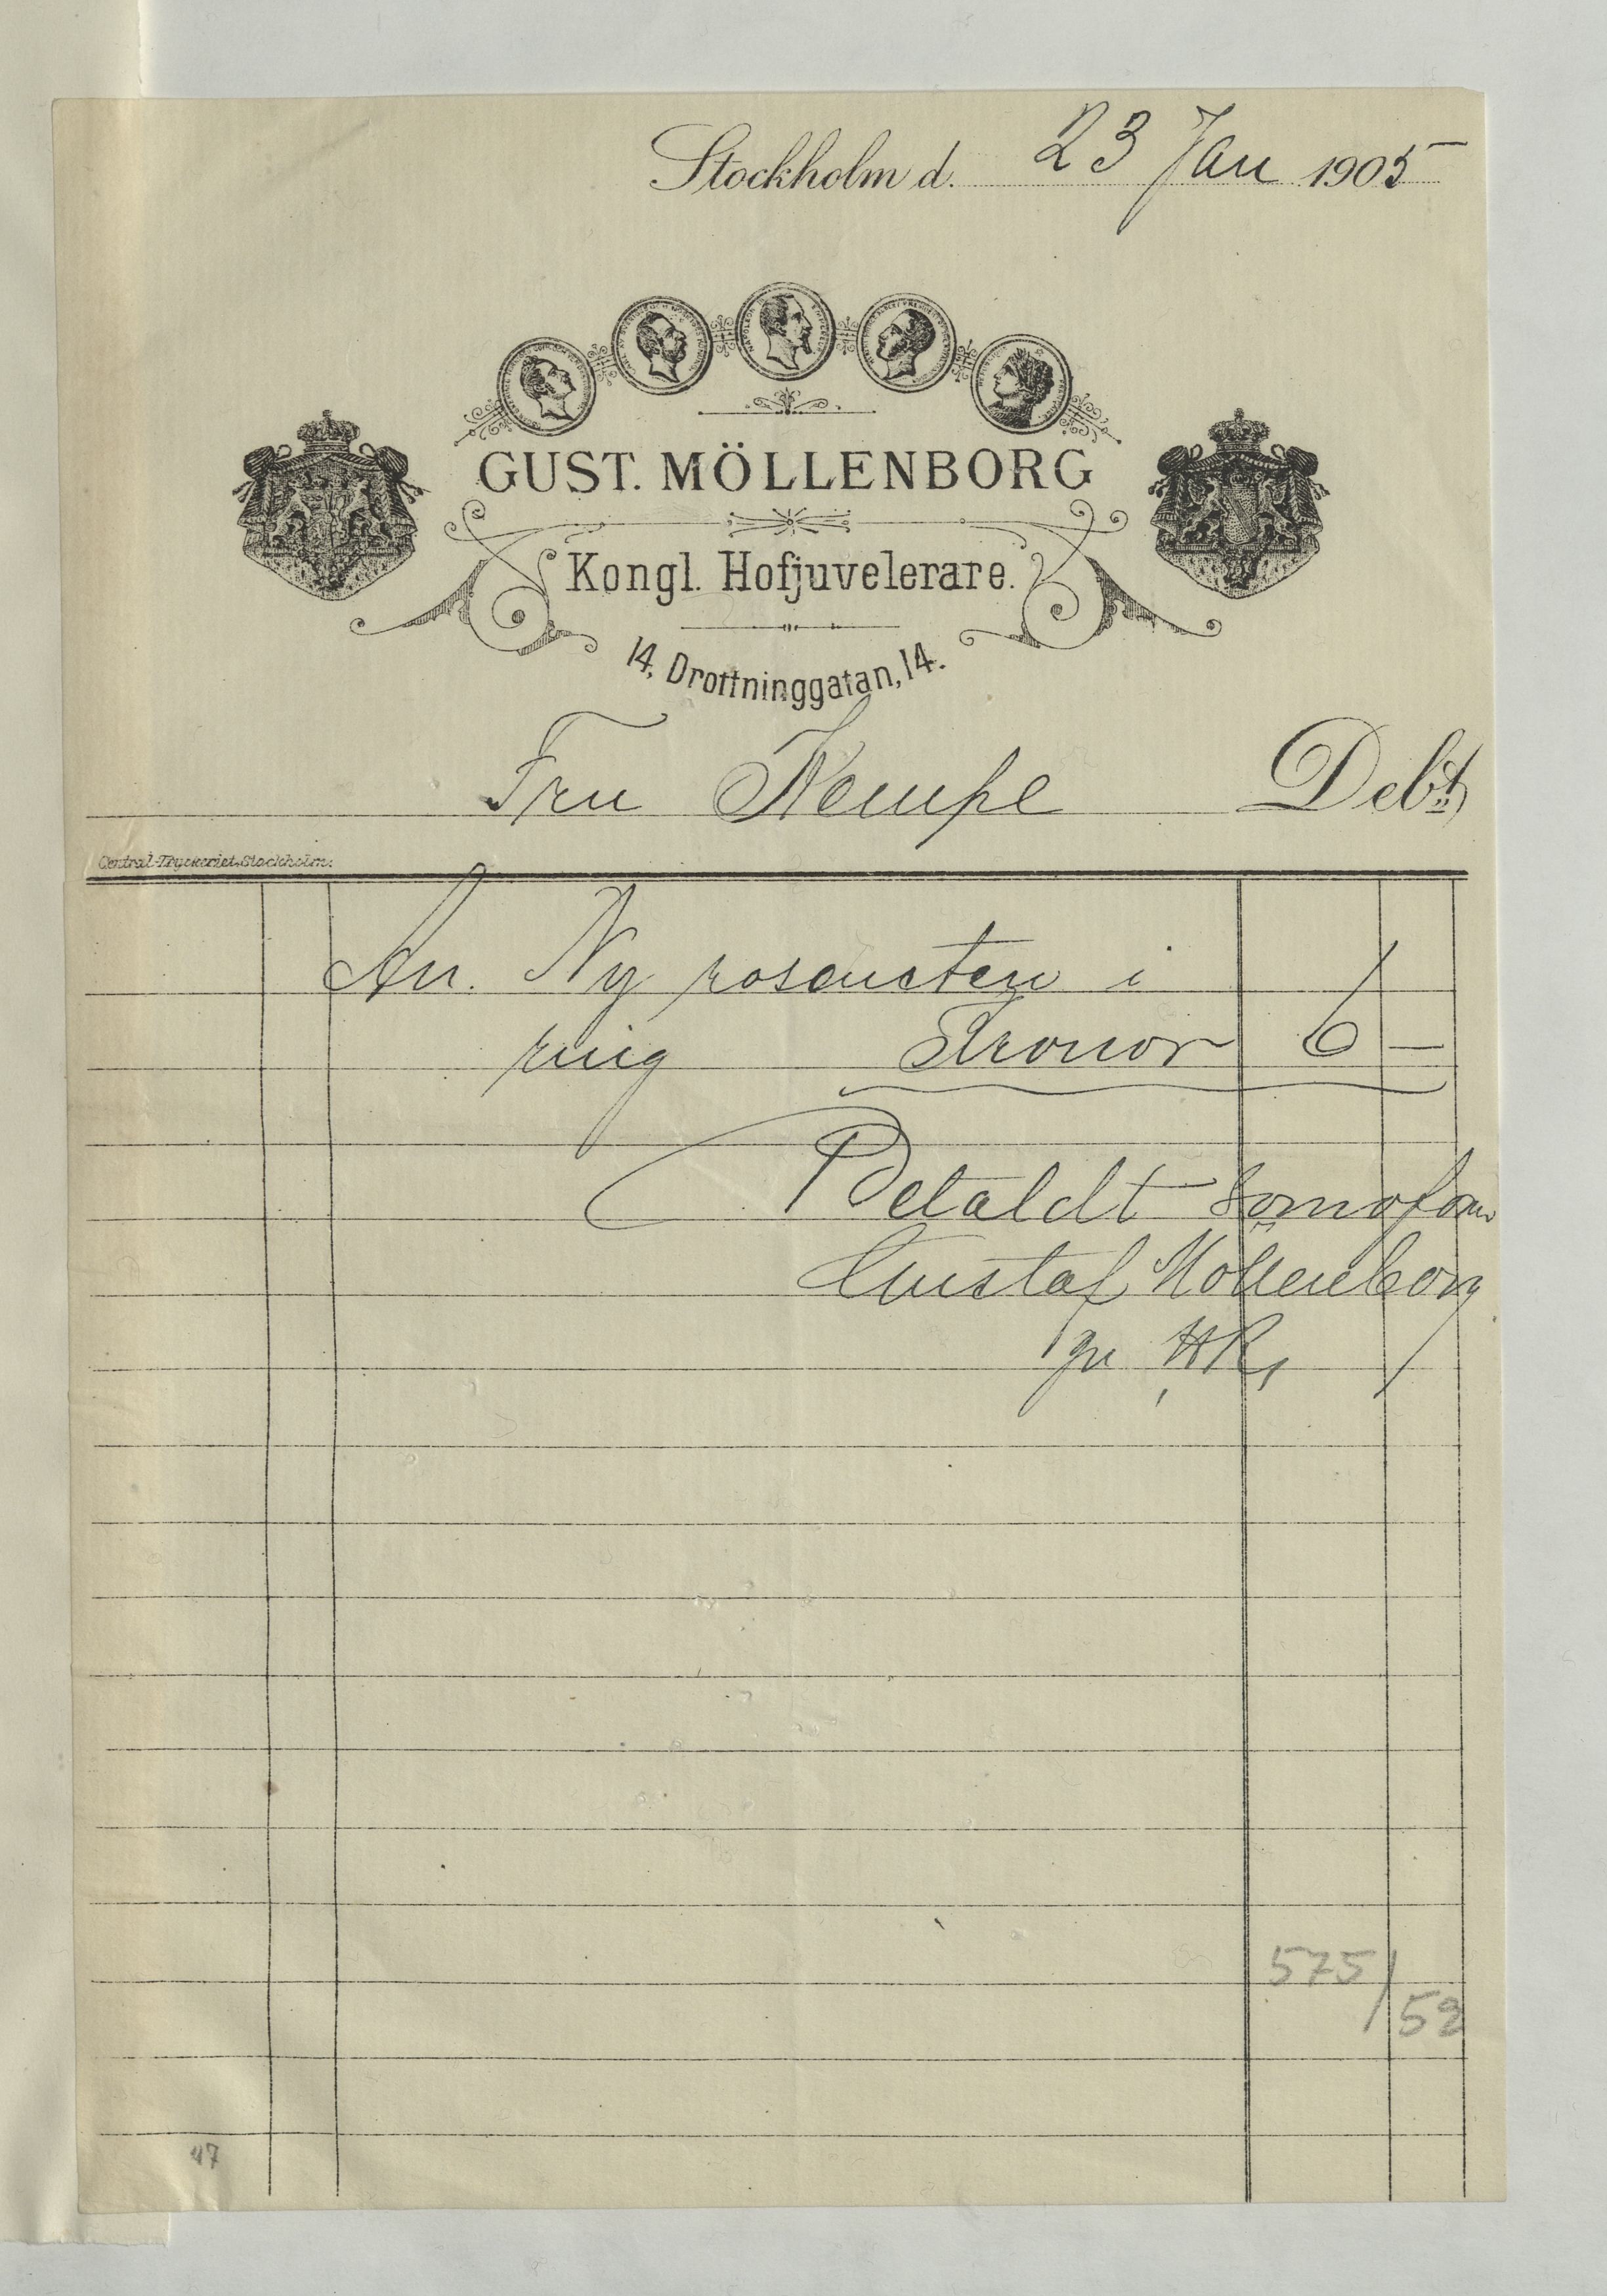 Stockholm d. 23 Jan 1905
GUST. MÖLLENBORG
Kongl. Hofjuvelerare.
14, Drottninggatan, 14.
Fru Kempe Debt
Central-Tryckeriet, Stockholm.
An. Ny rosensten i
ring Kronor 6 —
Betaldt som ofvan
Gustaf Möllenborg
gm HR
575/
52
47